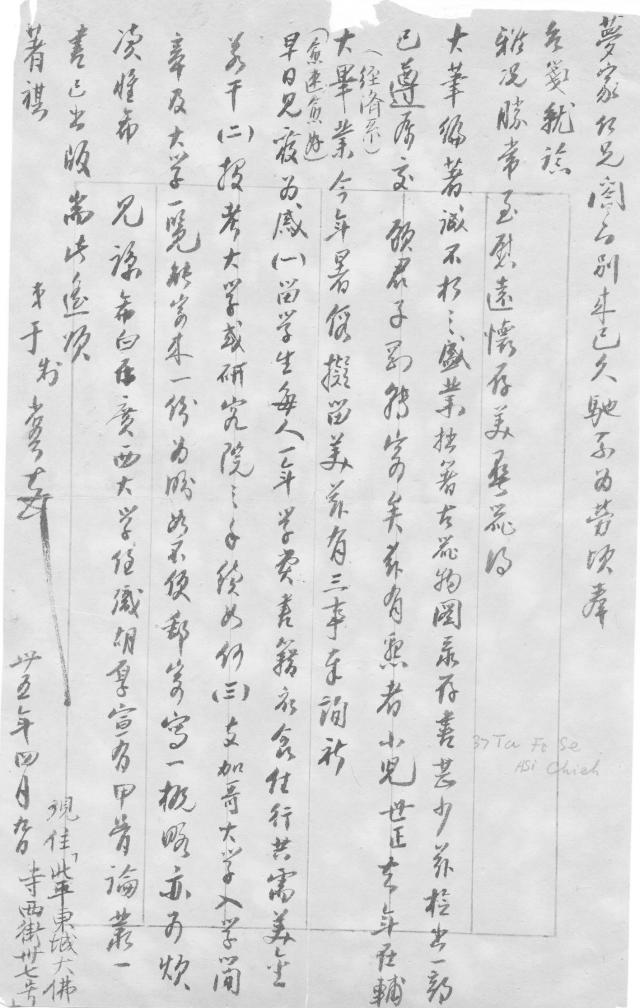 夢家仁兄閣下別来已久馳系為勞頃奉
手箋就諗
雅況勝常至慰遠懷存美銅器得
大筆編著誠不朽之盛業拙著古器物圖录存書甚少茲檢出一部
已遵屬交 顧君子剛轉寄矣茲有懇者小兒世正去年在輔
（經済系）
大畢業今年暑假擬留美茲有三事奉詢祈
（愈速愈好）
早日見覆為感(一)留学生每人一年学費書籍衣食住行共需美金
若干(二)投考大学或研究院之手續如何(三)支加哥大学入学簡
章及大学一覽能寄来一份為盼如不便郵寄寫一概略亦可煩
瀆惟希
見諒希白在廣西大学任職胡厚宣有甲骨論叢一
書已出版 耑此遙頌
著祺
弟于 制
卅五年四月
現住北平東城大佛
寺西街卅七号
37 Ta Fo Se
HSi Chieh